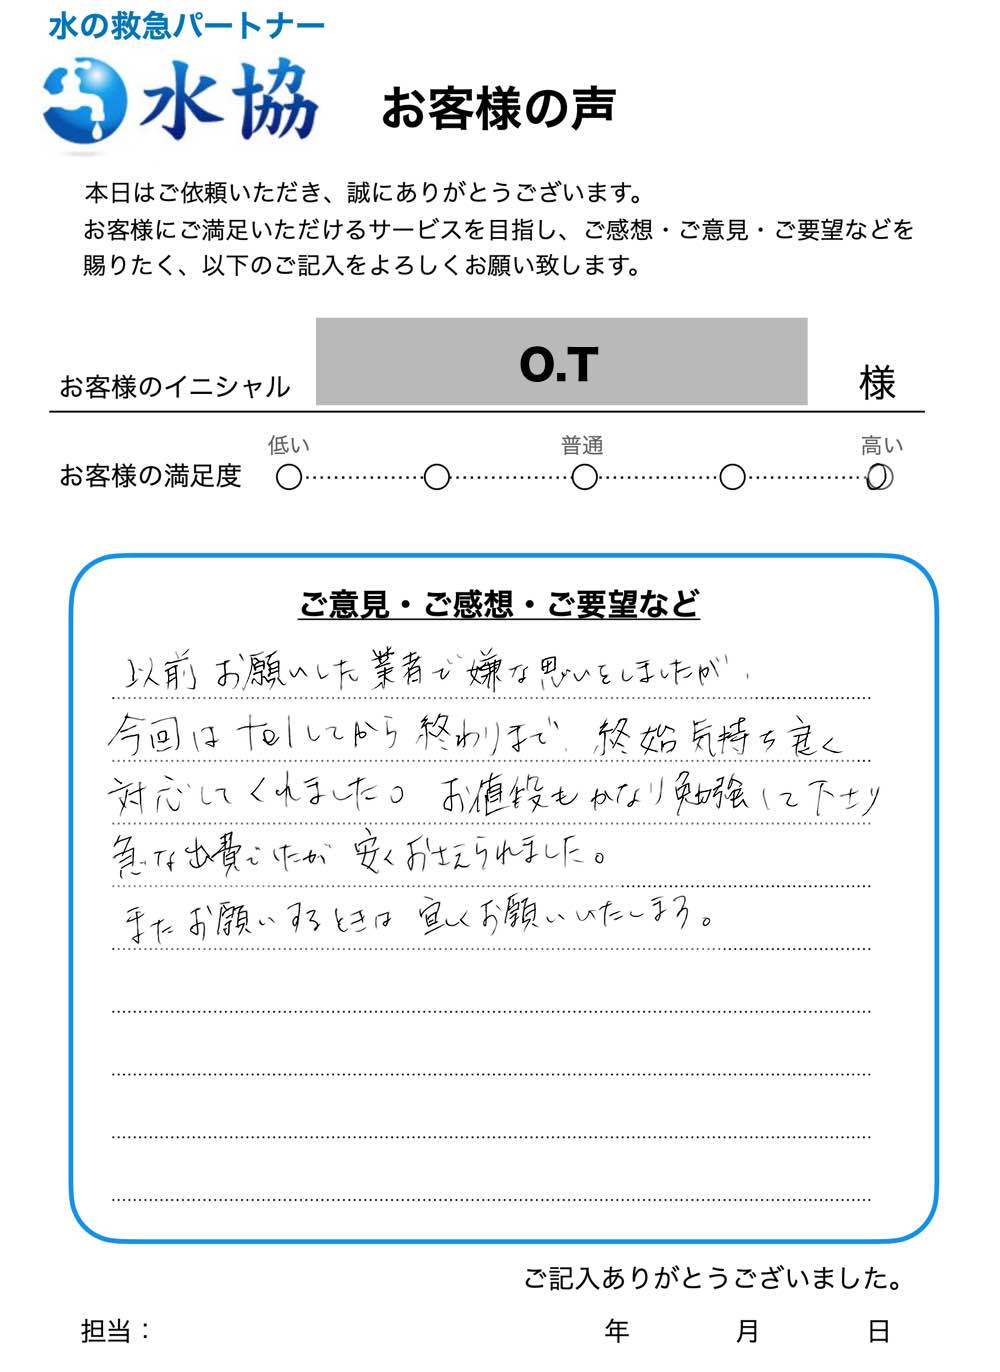 水の救急パートナー
水協
お客様の声
本日はご依頼いただき、誠にありがとうございます。
お客様にご満足いただけるサービスを目指し、ご感想・ご意見・ご要望などを
賜りたく、以下のご記入をよろしくお願い致します。
お客様のイニシャル O.T 様
低い 普通 高い
お客様の満足度
ご意見・ご感想・ご要望など
以前お願いした業者で嫌な思いをしましたが、
今回はtelしてから終わりまで、終始気持ち良く
対応してくれました。お値段もかなり勉強して下さり
急な出費でしたが安くおさえられました。
またお願いするときは宜しくお願いいたします。
ご記入ありがとうございました。
担当： 年 月 日